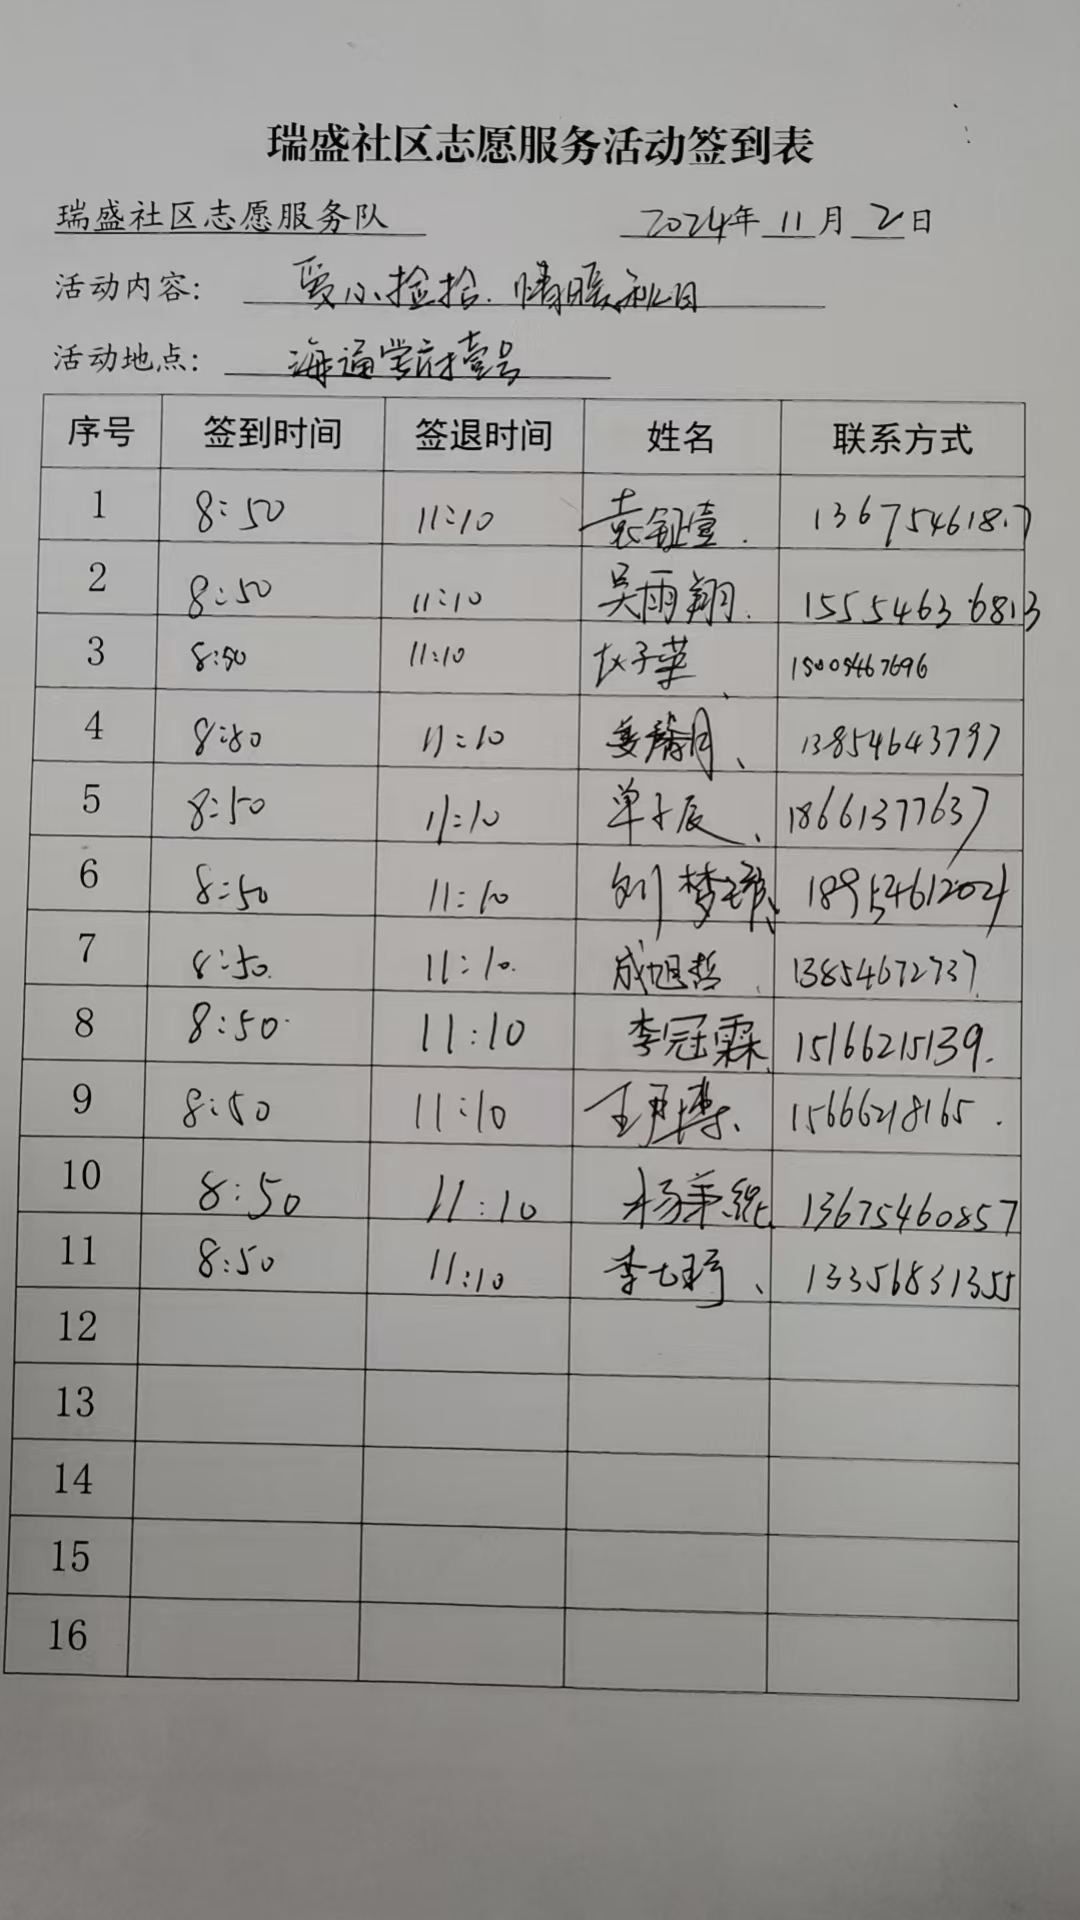 瑞盛社区志愿服务活动签到表
瑞盛社区志愿服务队 2024年 11月 2日
活动内容: 爱心捡拾.情暖秋日
活动地点: 海通学府壹号
序号 签到时间 签退时间 姓名 联系方式
1 8:50 11:10 袁钲壹. 13675461817
2 8:50 11:10 吴雨翔. 15554636813
3 8:50 11:10 赵子苹 15005467696
4 8:50 11:10 姜馨月、 13854643797
5 8:50 11:10 单子辰、 18661377637
6 8:50 11:10 刘梦 18954612024
7 8:50. 11:10. 成旭哲 13854672737
8 8:50. 11:10 李冠霖 15166215139.
9 8:50 11:10 王尹博、 15666218165.
10 8:50 11:10 杨 13675460857
11 8:50 11:10 李七 、 13356831355
12
13
14
15
16